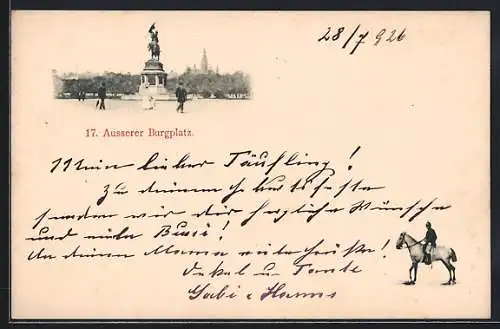 28/7 926
17. Ausserer Burgplatz.
Mein lieber Täufling!
Zu deinem Geburtsfeste
senden wir dir herzliche Wünsche
und viele Bussi!
An deine Mama viele Grüße!
Onkel u Tante
Gabi & Hanns